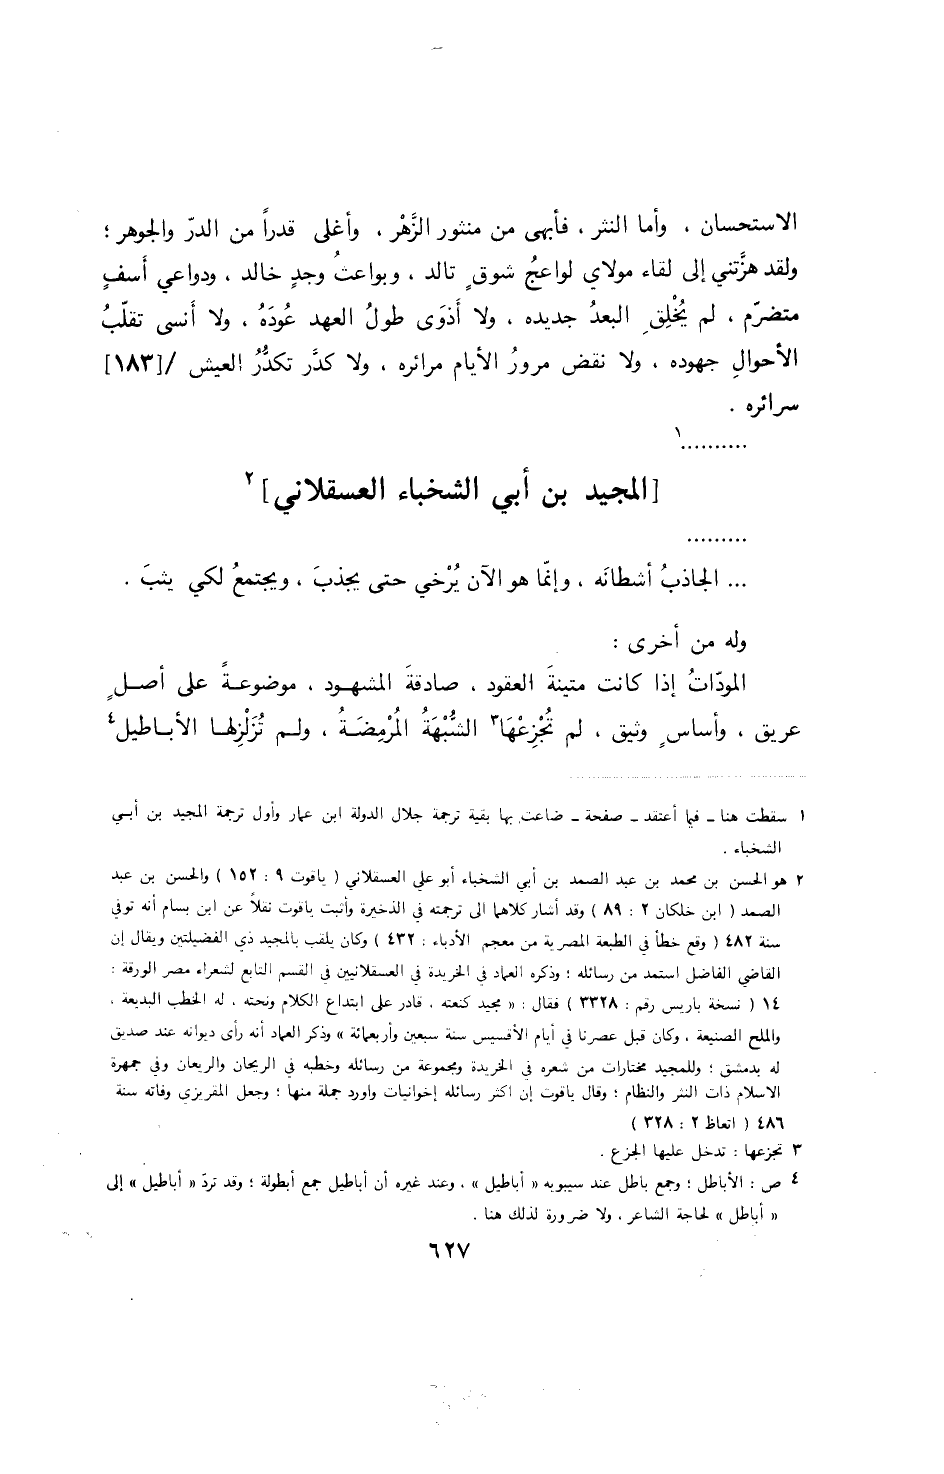 الاستحسان ، وأما النثر ، فأبهى من منثور الزَّهْر ، وأغلى قدراً من الدرّ والجوهر ؛
ولقد هزَّتني إلى لقاء مولاي لواعجُ شوقٍ تالد ، وبواعثُ وجدٍ خالد ، ودواعي أسفٍ
متضرّم ، لم يُخْلِقِ البعدُ جديده ، ولا أذوَى طولُ العهد عُودَهُ ، ولا أنسى تقلّبُ
الأحوالِ جهوده ، ولا نقض مرورُ الأيام مرائره ، ولا كدَّر تكدُّرُ العيش /[١٨٣]
سرائره .
..........١
[المجيد بن أبي الشخباء العسقلاني]٢
.........
... الجاذبُ أشطانَه ، وإنّما هو الآن يُرْخي حتى يجذبَ ، ويجتمعُ لكي يثبَ .
وله من أخرى :
المودّاتُ إذا كانت متينةَ العقود ، صادقةَ المشهود ، موضوعةً على أصلٍ
عريق ، وأساسٍ وثيق ، لم تُجْزِعْهَا٣ الشُّبْهَةُ المُرْمِضَةُ ، ولم تُزَلْزِلها الأباطيل٤
١ سقطت هنا ــ فيما أعتقد ــ صفحة ــ ضاعت بها بقية ترجمة جلال الدولة ابن عمار وأول ترجمة المجيد بن أبي
الشخباء .
٢ هو الحسن بن محمد بن عبد الصمد بن أبي الشخباء أبو علي العسقلاني ( ياقوت ٩ : ١٥٢ ) والحسن بن عبد
الصمد ( ابن خلكان ٢ : ٨٩ ) وقد أشار كلاهما الى ترجمته في الذخيرة وأثبت ياقوت نقلاً عن ابن بسام أنه توفي
سنة ٤٨٢ ( وقع خطأ في الطبعة المصرية من معجم الأدباء : ٤٣٢ ) وكان يلقب بالمجيد ذي الفضيلتين ويقال إن
القاضي الفاضل استمد من رسائله ؛ وذكره العماد في الخريدة في العسقلانيين في القسم التابع لشعراء مصر الورقة :
١٤ ( نسخة باريس رقم : ٣٣٢٨ ) فقال : « مجيد كنعته ، قادر على ابتداع الكلام ونحته ، له الخطب البديعة ،
والملح الصنيعة ، وكان قبل عصرنا في أيام الأقسيس سنة سبعين وأربعمائة » وذكر العماد أنه رأى ديوانه عند صديق
له بدمشق ؛ وللمجيد مختارات من شعره في الخريدة ومجموعة من رسائله وخطبه في الريحان والريعان وفي جمهرة
الاسلام ذات النثر والنظام ؛ وقال ياقوت إن اكثر رسائله إخوانيات واورد جملة منها ؛ وجعل المقريزي وفاته سنة
٤٨٦ ( اتعاظ ٢ : ٣٢٨ )
٣ تجزعها : تدخل عليها الجزع .
٤ ص : الأباطل ؛ وجمع باطل عند سيبويه « أباطيل » ، وعند غيره أن أباطيل جمع أبطولة ؛ وقد تردّ « أباطيل » إلى
« أباطل » لحاجة الشاعر ، ولا ضرورة لذلك هنا .
٦٢٧